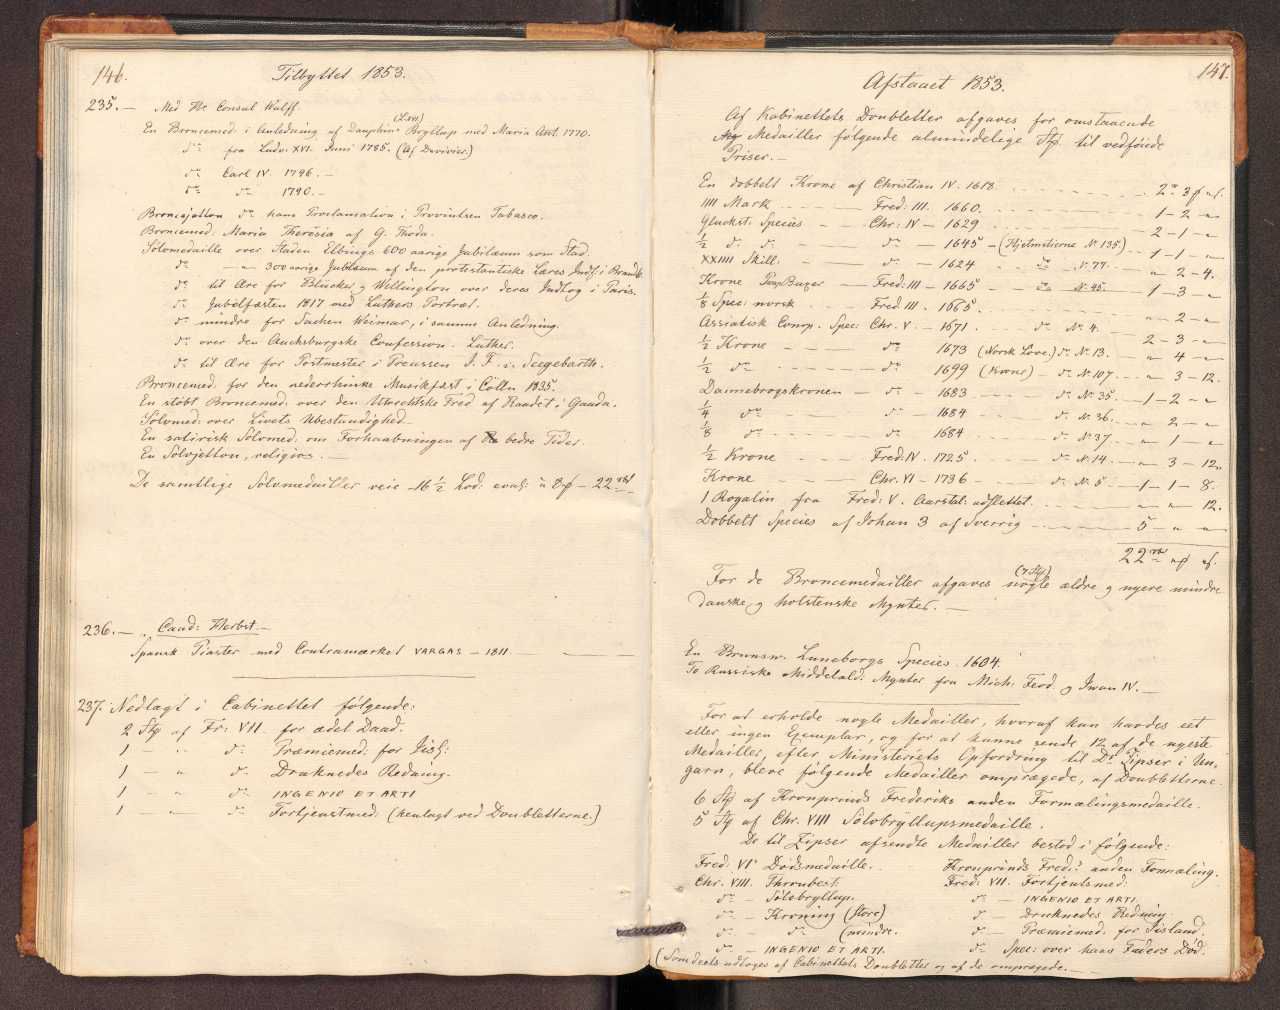 146.
Tilbyttet 1853.
235. — Med Hr Consul Wulff.
En Broncemed: i Anledning af Dauphins (Lxvi) Bryllup med Maria Ant. 1770.
do fra Ludv: XVI. Juni 1785. (Af Duvivier.)
do Carl IV 1796. —
do do 1790. —
Broncejetton do hans Proclamation i Provintsen Tabasco.
Broncemed: Maria Theresia af G. Toda.
Sølvmedaille over Staden Elbings 600 aarige Jubilæum som Stad.
do — " — 300 aarige Jubilæum af den protestantiske Læres Indf: i Brandb.
do til Ære for Blücher og Wellington over deres Indtog i Paris.
do Jubelfæsten 1817 med Luthers Portræt.
do mindre for Sachen Weimar, i samme Anledning.
do over den Auchsburgske Confession. Luther.
do til Ære for Postmester i Preussen I. F. v. Seegebarth.
Broncemed: for den nederrhinske Musikfæst i Cölln 1835.
En støbt Broncemed: over den Utrechtske Fred af Raadet i Gouda.
Sølvmed: over Livets Ubestandighed.
En satirisk Sølvmed: om Forhaabningen af bedre Tider.
En Sølvjetton, religiøs. —
De samtlige Sølvmedailler veie 16½ Lod: eval: à 8 ₰ — 22 rbd
236. — Cand: Herbst. —
Spansk Piaster med Contramærket VARGAS — 1811
237. Nedlagt i Cabinettet følgende:
2 Stk af Fr: VII for ædel Daad.
1 — " do Præmiemed: for Iisl:
1 — " do Druknedes Redning.
1 — " do INGENIO ET ARTI
1 — " do Fortjenstmed: (henlagt ved Doubletterne.)
147.
Afstaaet 1853.
Af Kabinettets Doubletter afgaves for omstaaende
Medailler følgende almindelige Stk. til vedføiede
Priser. —
En dobbelt Krone af Christian IV. 1618. 2 rd 3 ₰ " s.
IIII Mark Fred: III. 1660. 1 — 2 — "
Gluckst. Species Chr: IV — 1629 2 — 1 — "
½ do do do 1645 — (Hjelmstierne No 135) 1 — 1 — "
XXIIII Skill: do 1624 do No 77. " — 2 — 4.
Krone Fred: III — 1665 do No 45. 1 — 3 — "
⅛ Spec: norsk Fred III. 1665. " — 2 — "
Assiatisk Comp. Spec: Chr. V — 1671 do No 4. 2 — 3 — "
½ Krone do 1673 (Norsk Løve.) do No 13. " — 4 — "
½ do do 1699 (Krone) — do No 107. " — 3 — 12.
Dannebrogskronen do 1683 do No 35. 1 — 2 — "
¼ do do 1684 do No 36. " — 2 — "
⅛ do do 1684 do No 37. " — 1 — "
½ Krone Fred: IV. 1725 do No 14. " — 3 — 12 "
Krone Chr: VI — 1736 do No 5 1 — 1 — 8.
1 Rogalin fra Fred: V. Aarstal: udslettet. " — " — 12.
Dobbelt Species af Johan 3 af Sverrig 5 — " — "
22 rbd " ₰ " s.
For de Broncemedailler afgaves nogle (7 Stk) ældre og nyere mindre
danske og holstenske Mynter. —
En Brunsw. Luneborgs Species 1604.
To Russiske Middelald: Mynter fra Mich: Feod. og Iwan IV. —
For at erholde nogle Medailler, hvoraf kun havdes eet
eller ingen Exemplar, og for at kunne sende 12 af de nyeste
Medailler, efter Ministeriets Opfordring til Dr Zipser i Un-
garn, bleve følgende Medailler omprægede, af Doubletterne.
6 Stk af Kronprinds Frederiks anden Formælingsmedaille.
5 Stk af Chr. VIII Sølvbryllupsmedaille.
De til Zipser afsendte Medailler bestod i følgende:
Fred. VI's Dødsmedaille.
Chr. VIII. Thronbest:
do — Sølvbryllup.
do — Kroning (Store)
do — do (mindre.
do — INGENIO ET ARTI.
Kronprinds Fred:s anden Formæling.
Fred: VII. Fortjenstmed:
do — INGENIO ET ARTI.
do — Druknedes Redning.
do — Præmiemed: for Iisland.
do Spec: over hans Faders Død.
(Som deels udtoges af Cabinettets Doubletter og af de omprægede. —